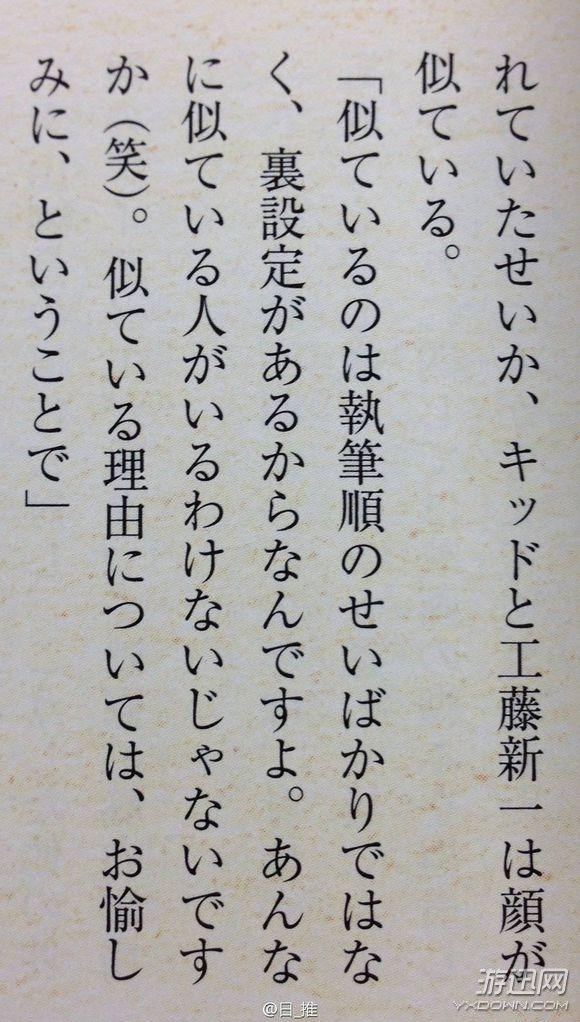 れていたせいか、キッドと工藤新一は顔が
似ている。
「似ているのは執筆順のせいばかりではな
く、裏設定があるからなんですよ。あんな
に似ている人がいるわけないじゃないです
か（笑）。似ている理由については、お愉し
みに、ということで」
@目_推
游迅网
YXDOWN.COM